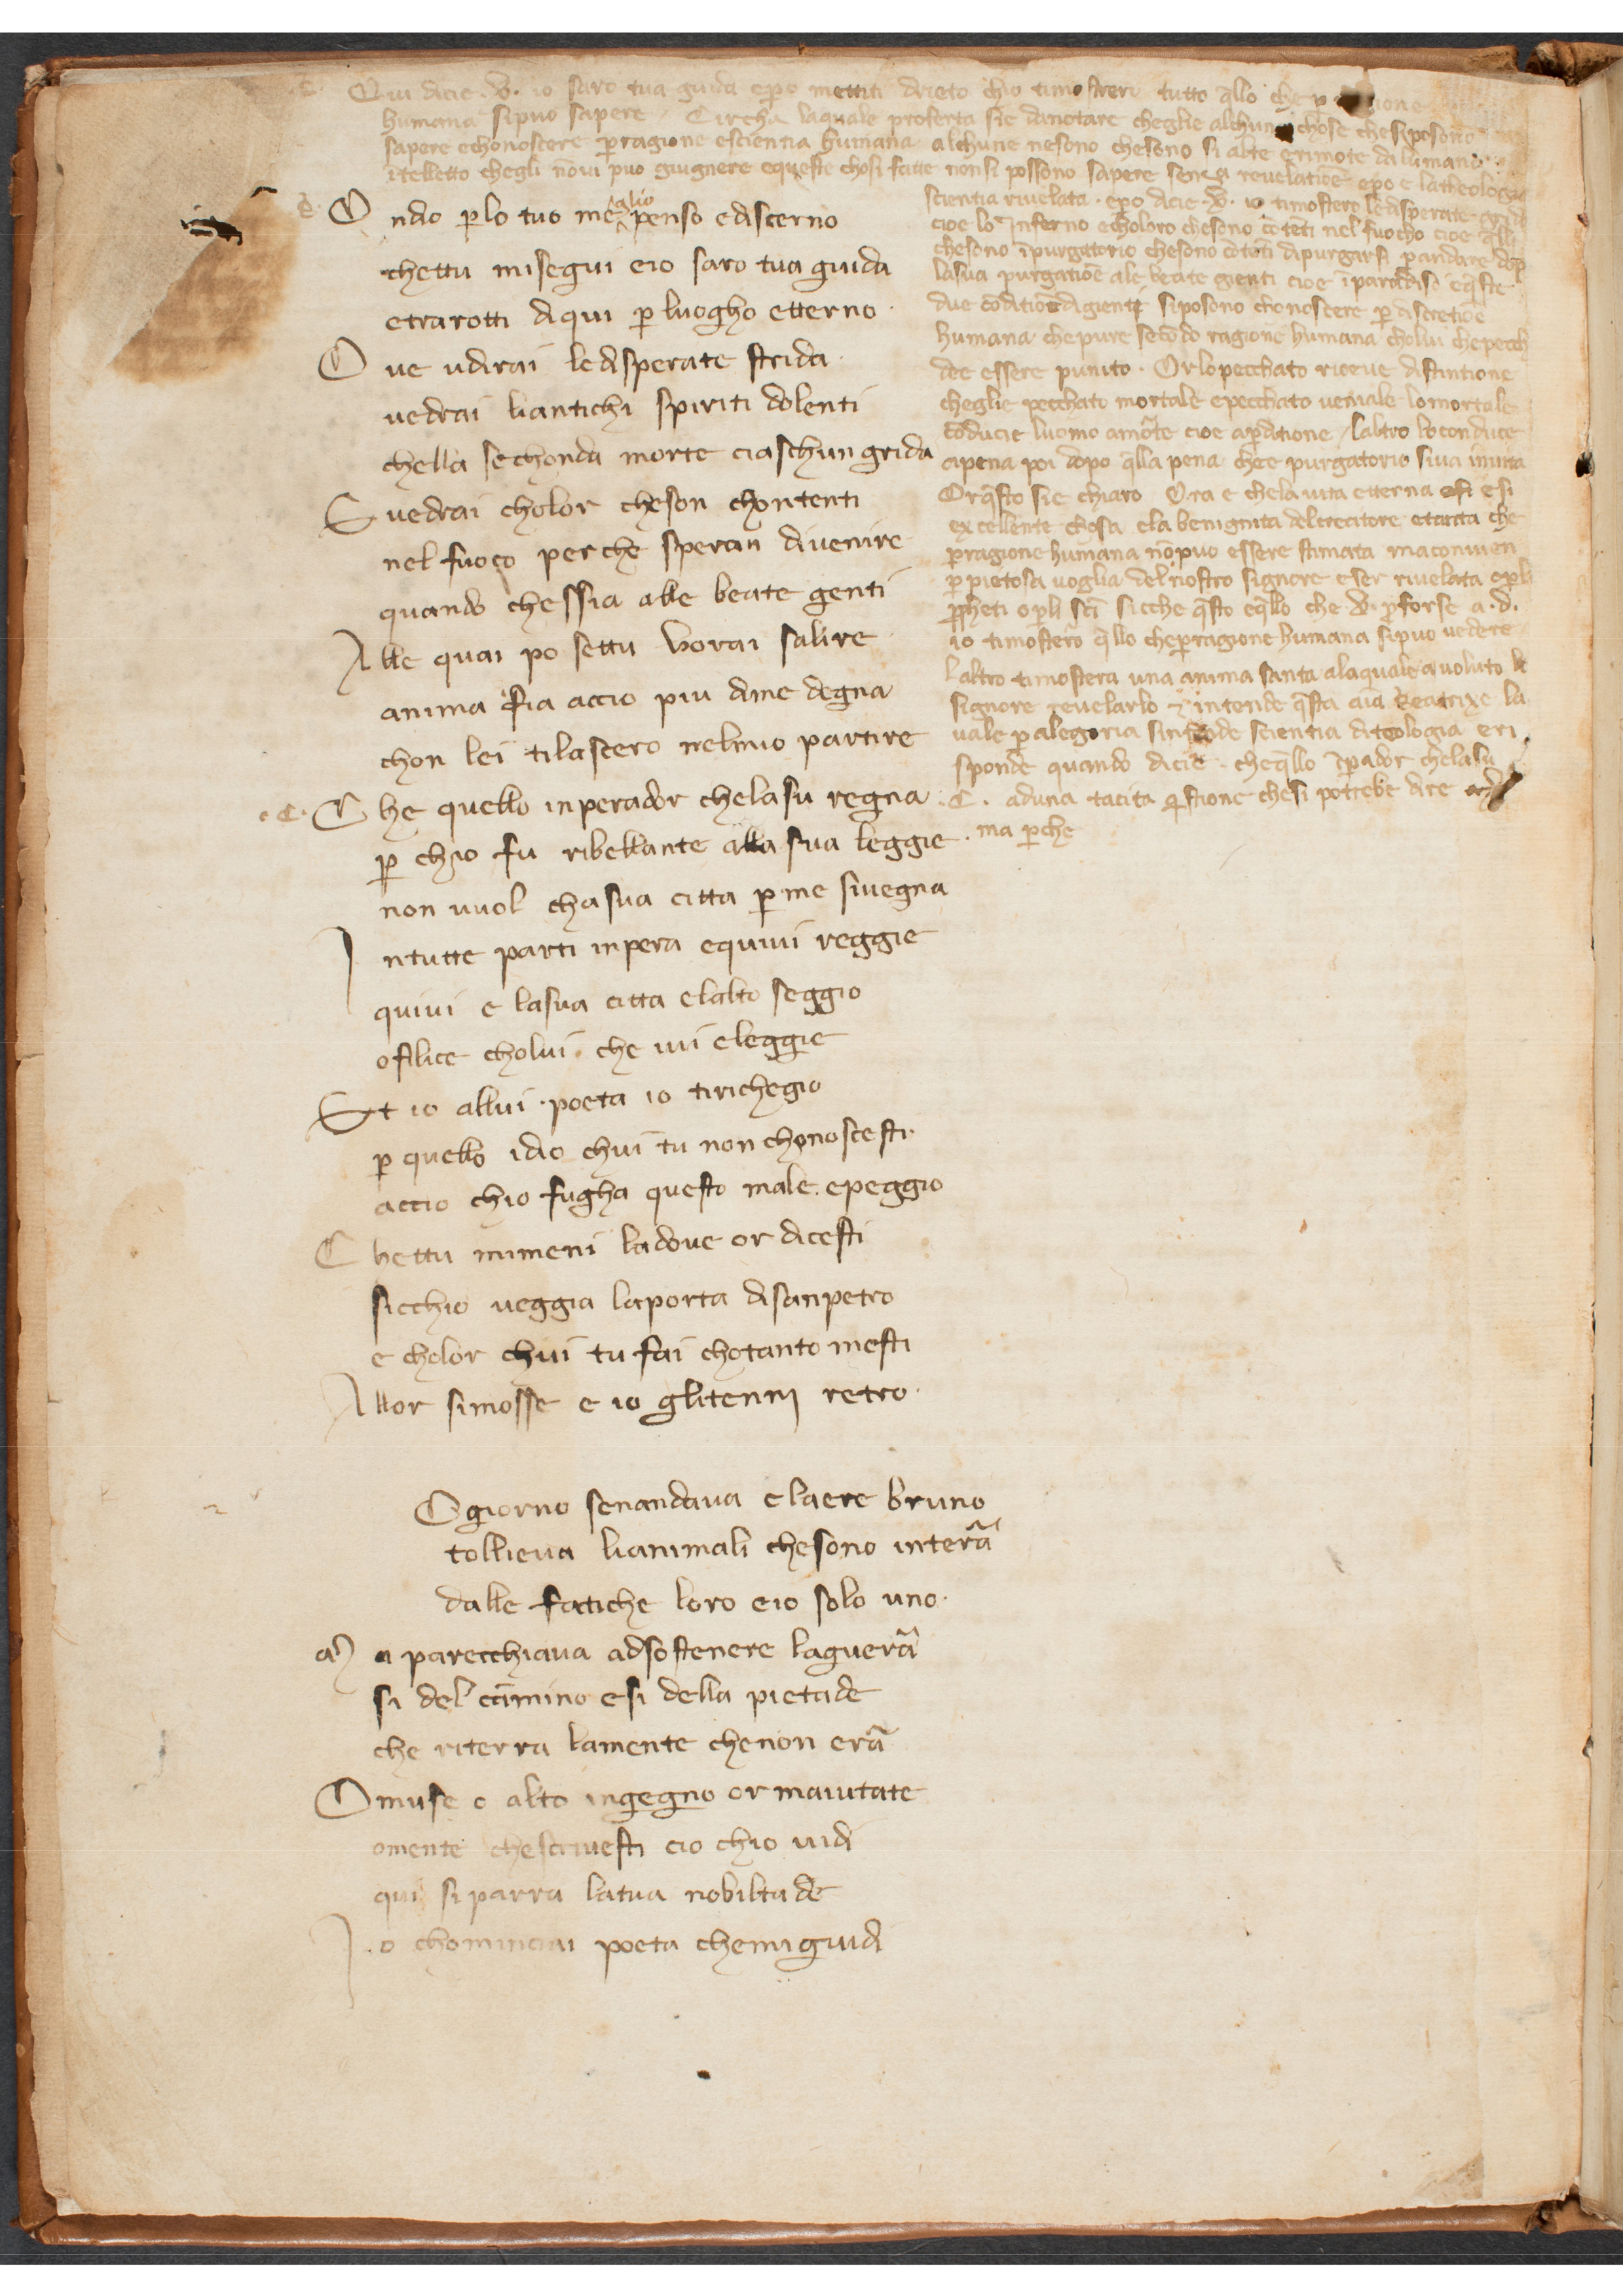 .d. Qui dicie .V. io saro tua guida epo mettiti drieto chio timosterro tutto q̄llo che p
humana sipuo sapere / Circha laquale proferta sie danotare cheglie alchune chose chesiposono
sapere echonoscere p̱ragione escientia humana alchune nesono chesono si alte erimote dalumano
itelletto chegli nōui puo giugnere equeste chosi fatte nonsi possono sapere senza reuelatiōe epo e latheologia
scientia riuelata . epo dicie .V. io timosterro ledisperate strida
cioe lo Inferno echoloro chesono cōtēti nel fuocho cioe q̄lli
chesono īpurgatorio chesono cōtēti dipurgarsi p andare dop̄
lasua purgatiōe ale beate gienti cioe īparadiso eq̄ste
due cōditiōi digienti siposono chonoscere p̱ discretiōe
humana chepure secōdo ragione humana cholui chepecch
dee essere punito . Orlopecchato riceue distintione
cheglie pecchato mortale epecchato ueniale lomortale
cōducie luomo amōte cioe ap̱ditione / laltro loconduce
apena poi dopo q̄lla pena chee purgatorio siua inuita
Orq̄sto sie chiaro Ora e chela uita etterna esi esi
excellente chosa ela benignita delcreatore etanta che
p̱ragione humana nōpuo essere stimata maconuien
p̱ pietosa uoglia del nostro signore esser riuelata op̱li
p̱pheti op̱li sc̄i sicche q̄sto eq̄llo che .V. p̱forse a .d.
io timosterro q̄llo chep̱ragione humana sipuo uedere
laltro timostera una anima santa alaquale auoluto lo
signore reuelarlo & intende q̄sta aīa beatrixe la
uale p̱ alegoria sintende scientia diteologia eri
sponde quando dicie . cheq̄llo īp̱ador chelasu
.C. aduna tacita q̄stione chesi potrebe dire
ma p̱che
.d. O ndio p̱lo tuo me \glio/ penso ediscerno
chettu misegui eio saro tua guida
etrarotti diqui p̱ luogho etterno
O ue udirai ledisperate strida
uedrai liantichi spiriti dolenti
chella sechonda morte ciaschun grida
E uedrai cholor cheson chontenti
nel fuoco perche speran diuenire
quando chessia alle beate genti
A lle quai po settu vorai salire
anima fia accio piu dime degna
chon lei tilascero nelmio partire
.C. C he quello inperador chelasu regna
p̱ chio fu ribellante alla sua leggie
non uuol chasua citta p̱ me siuegna
I ntutte parti inpera equiui reggie
quiui e lasua citta elalto seggio
ofilice cholui che iui eleggie
E t io allui . poeta io tirichegio
p̱ quello idio chui tu non chonoscesti
accio chio fugha questo male epeggio
C hettu mimeni ladoue or dicesti
sicchio ueggia laporta disanpetro
e cholor chui tu fai chotanto mesti
A llor simosse e io glitenni retro
O giorno senandaua elaere bruno
tollieua lianimali chesono interā
dalle fatiche loro eio solo uno
a parecchiaua adsostenere laguerā
si del cāmino esi della pietade
che riterra lamente chenon erā
O muse o alto ingegno or maiutate
omente chescriuesti cio chio uidi
qui siparra latua nobiltade
I o chominciai poeta chemiguidi